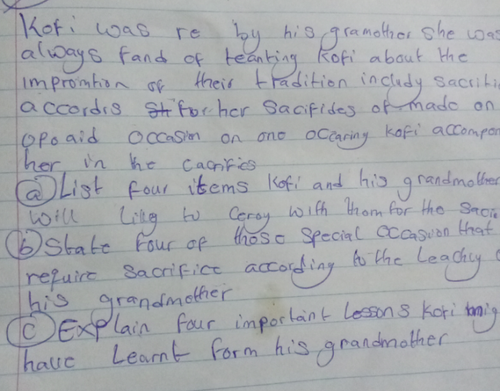 Kofi was re by his gramother she was
always fand of teanting Kofi about the
impromtion of their tradition includy sacriti
accordis for her sacifides of made on
opoaid occasim on one occaring kofi accompon
her in the cacrifies
(a) List four items Kofi and his grandmother
will like to ceroy with them for the sacri
(b) State four of those special occasion that
require sacrifice according to the Leachy
his grandmother
(c) Explain four important Lessons Kofi mig
have Learnt form his grandmother